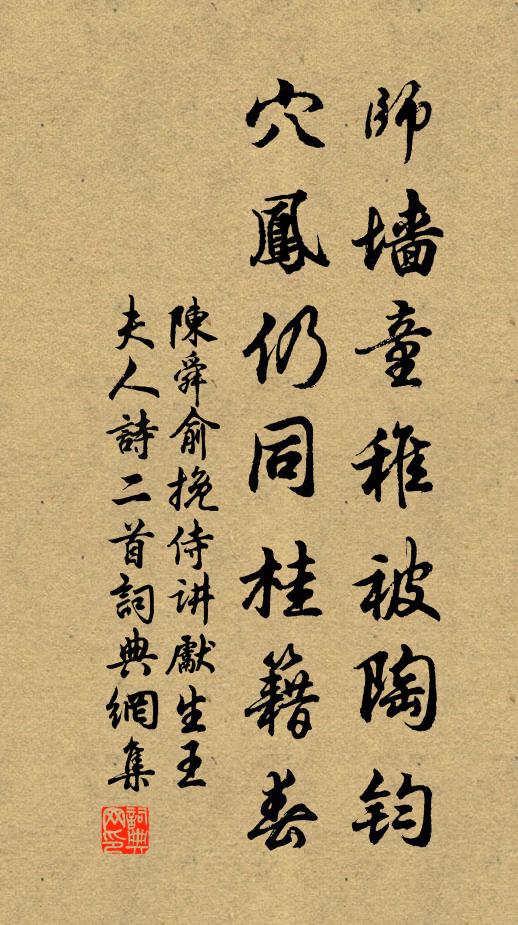 師墙童稚被陶钧
穴鳳仍同桂籍春
陳舜俞挽侍讲獻生王
夫人詩二首詞典網集
詞典网印